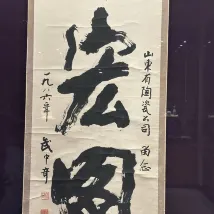 宏图
山東省陶瓷公司 留念
一九八六年
武中奇